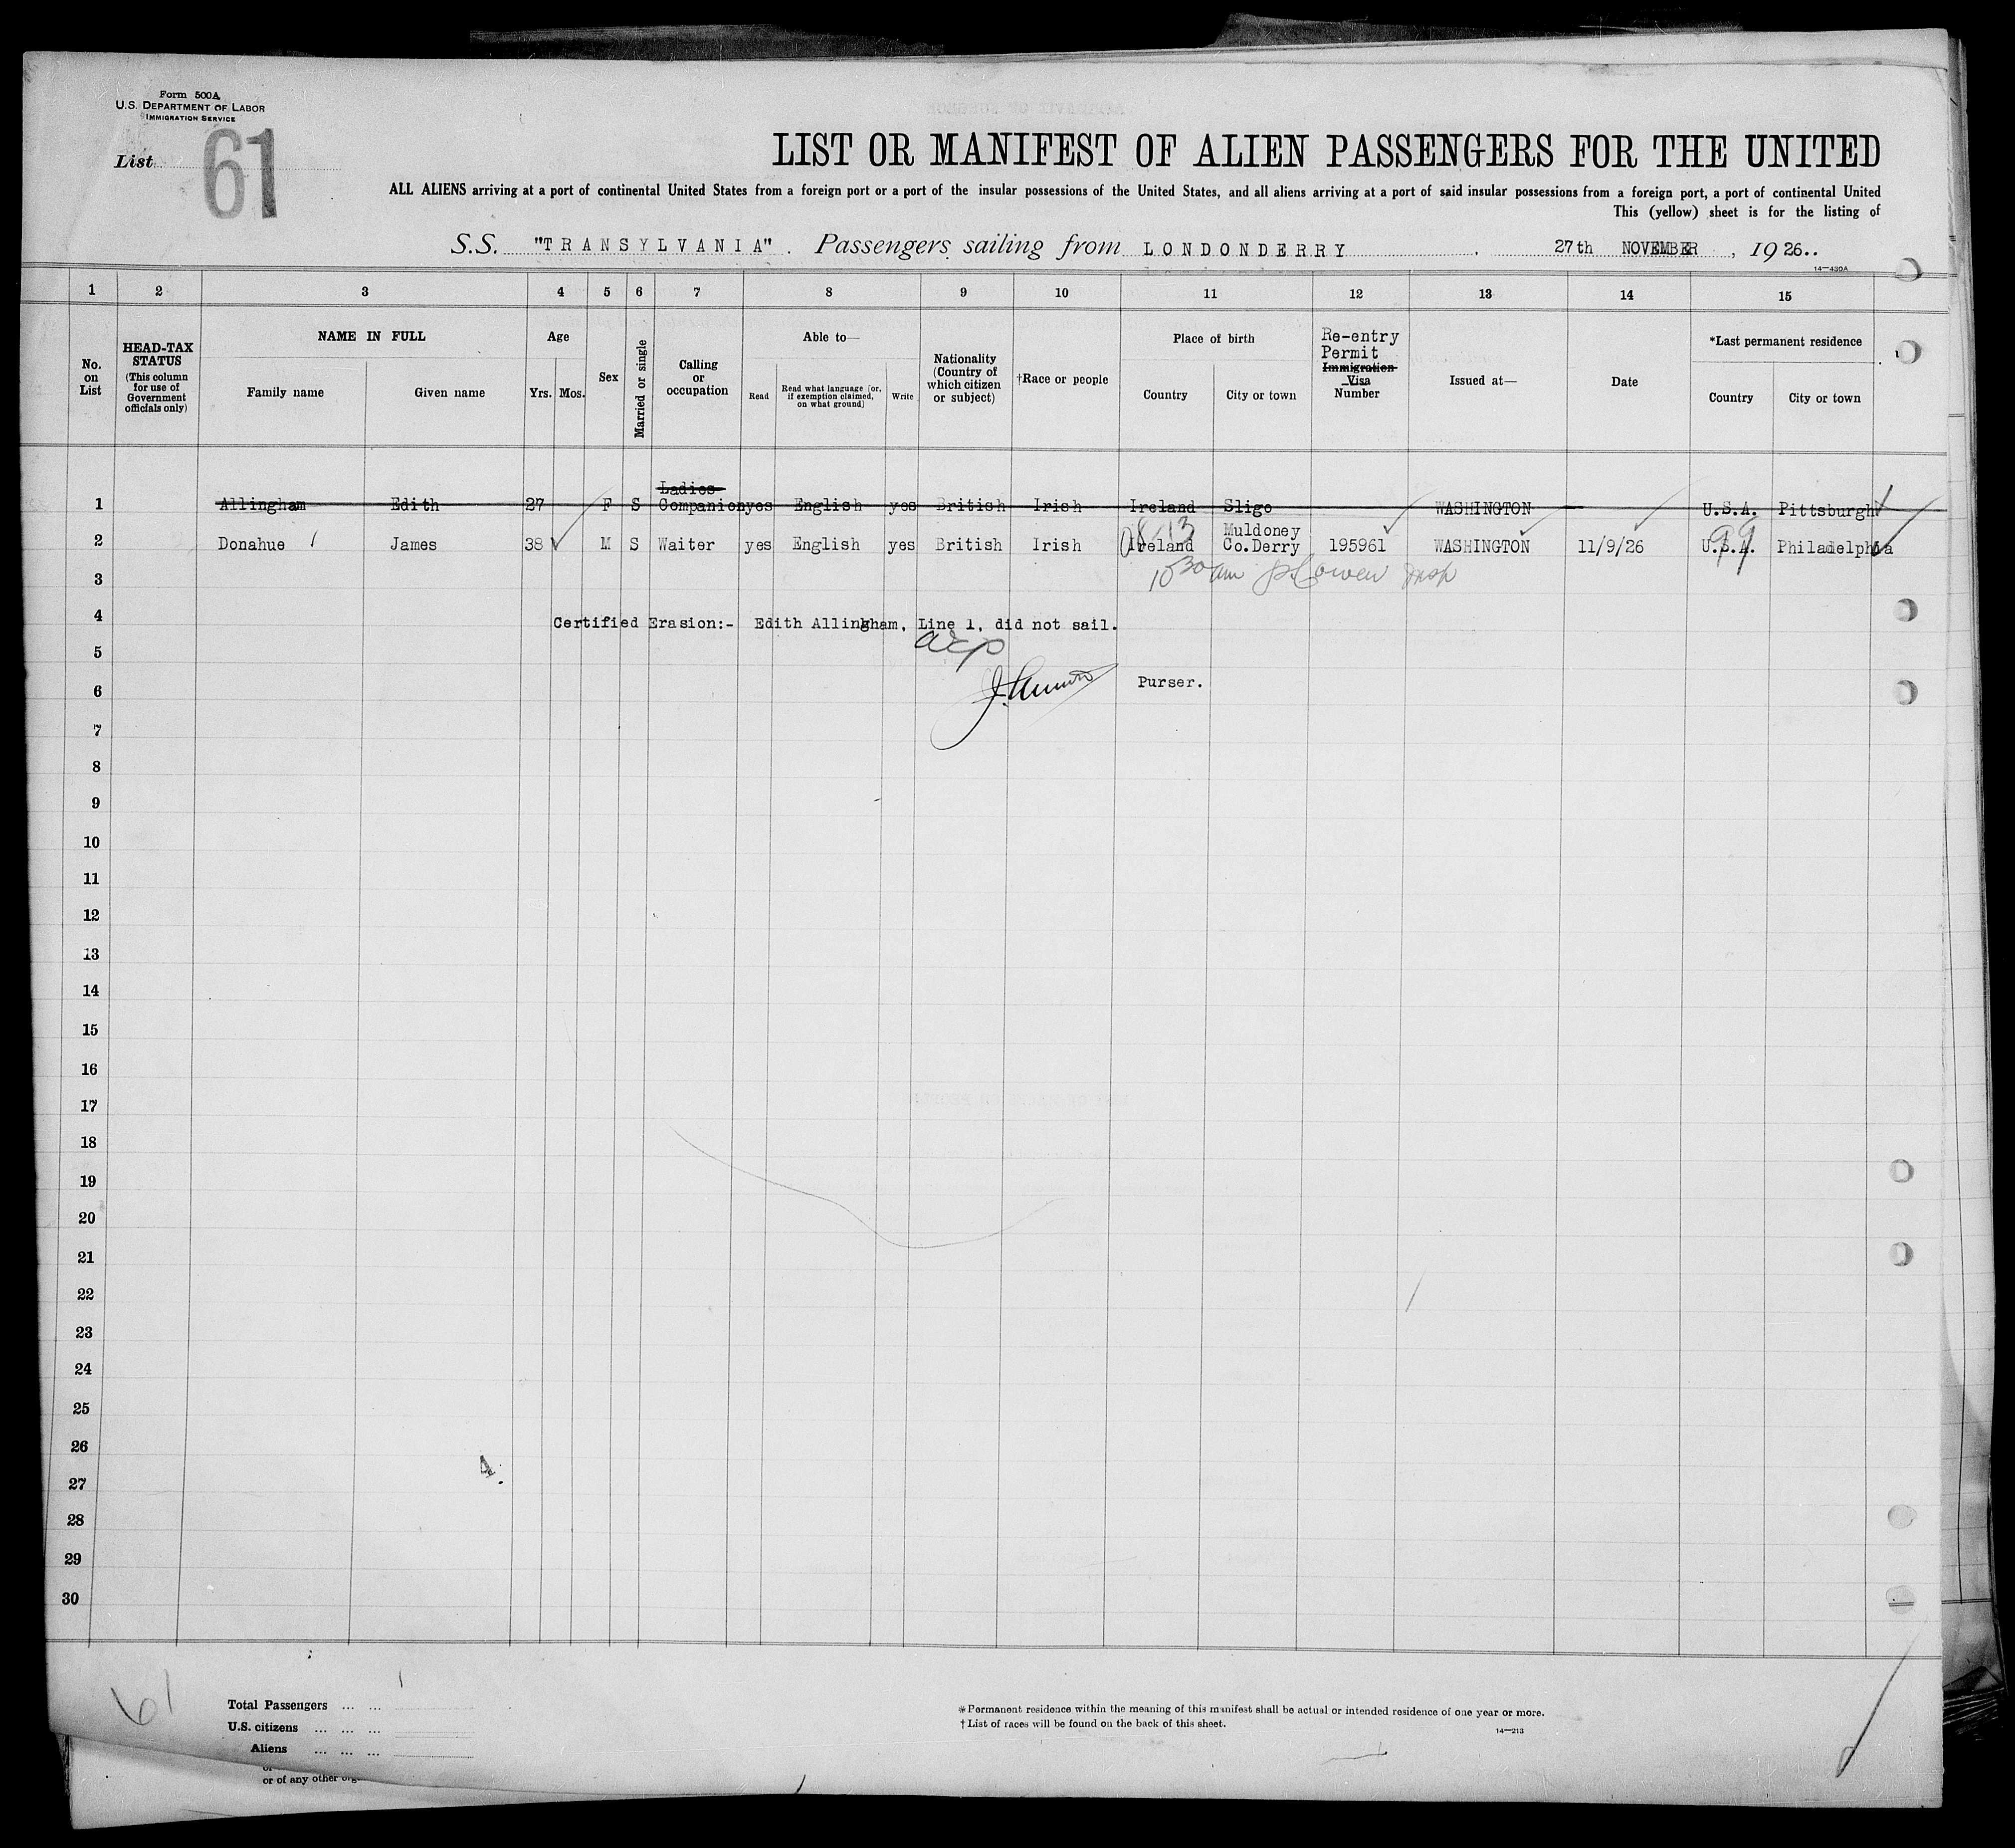 Form 500A
U.S. DEPARTMENT OF LABOR
IMMIGRATION SERVICE
List 61
LIST OR MANIFEST OF ALIEN PASSENGERS FOR THE UNITED
ALL ALIENS arriving at a port of continental United States from a foreign port or a port of the insular possessions of the United States, and all aliens arriving at a port of said insular possessions from a foreign port, a port of continental United
This (yellow) sheet is for the listing of
S.S. "TRANSYLVANIA". Passengers sailing from LONDONDERRY. 27th NOVEMBER, 1926..
14—430A
1 2 3 4 5 6 7 8 9 10 11 12 13 14 15
No. on List
HEAD-TAX STATUS (This column for use of Government officials only)
NAME IN FULL
Family name Given name
Age
Yrs. Mos.
Sex
Married or single
Calling or occupation
Able to—
Read Read what language [or, if exemption claimed, on what ground] Write
Nationality (Country of which citizen or subject)
†Race or people
Place of birth
Country City or town
Re-entry Permit
Immigration Visa Number
Issued at—
Date
*Last permanent residence
Country City or town
Ladies
1 Allingham Edith 27 F S Companion yes English yes British Irish Ireland Sligo WASHINGTON U.S.A. Pittsburgh
Muldoney
2 Donahue James 38 M S Waiter yes English yes British Irish Ireland Co.Derry 195961 WASHINGTON 11/9/26 U.S.A. Philadelphia
99
3 10 30 am
4 Certified Erasion:- Edith Allingham, Line 1, did not sail.
5
6 Purser.
7
8
9
10
11
12
13
14
15
16
17
18
19
20
21
22
23
24
25
26
27
28
29
30
61
Total Passengers ... ... 1
U.S. citizens ... ... ...
Aliens ... ... ...
or of any other
*Permanent residence within the meaning of this manifest shall be actual or intended residence of one year or more.
†List of races will be found on the back of this sheet.
14—213